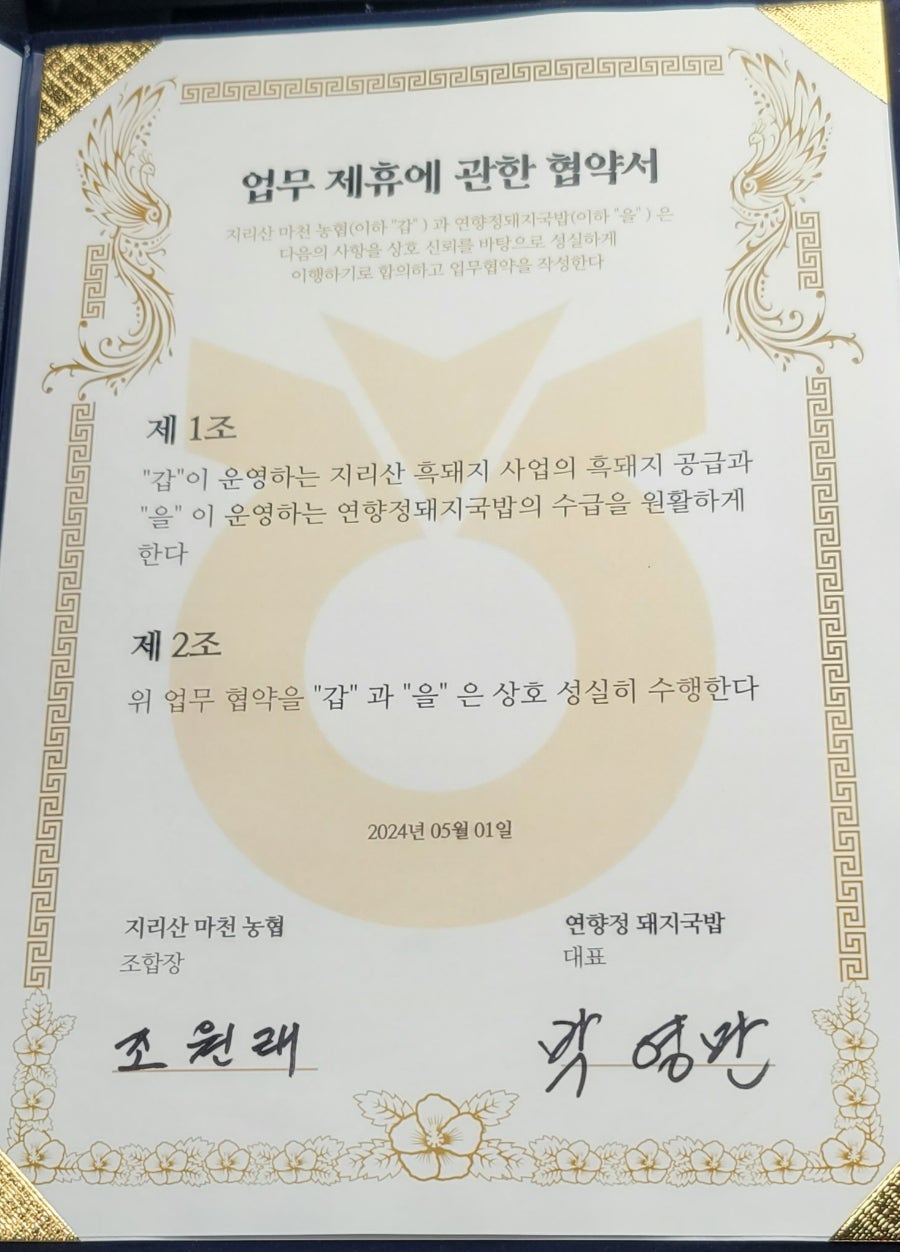 업무 제휴에 관한 협약서
지리산 마천 농협(이하 "갑" ) 과 연향정돼지국밥(이하 "을" ) 은
다음의 사항을 상호 신뢰를 바탕으로 성실하게
이행하기로 합의하고 업무협약을 작성한다
제 1조
"갑"이 운영하는 지리산 흑돼지 사업의 흑돼지 공급과
"을" 이 운영하는 연향정돼지국밥의 수급을 원활하게
한다
제 2조
위 업무 협약을 "갑" 과 "을" 은 상호 성실히 수행한다
2024년 05월 01일
지리산 마천 농협
조합장
조원래
연향정 돼지국밥
대표
박영만